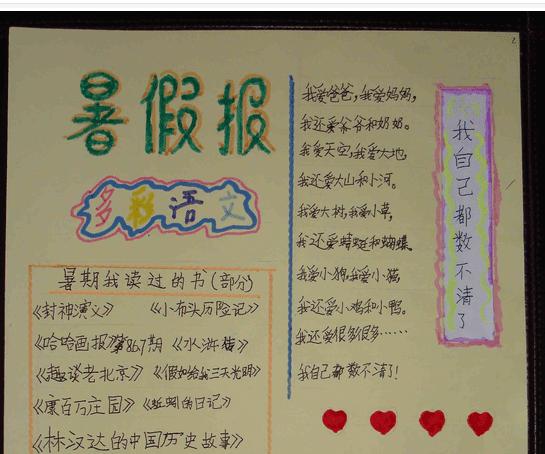 暑假报
多彩语文
暑期我读过的书(部分)
《封神演义》 《小布头历险记》
《哈哈画报》第867期 《水浒传》
《趣谈老北京》《假如给我三天光明》
《康百万庄园》《蚯蚓的日记》
《林汉达的中国历史故事》
我爱爸爸,我爱妈妈,
我还爱爷爷和奶奶。
我爱天空,我爱大地,
我还爱大山和小河。
我爱大树,我爱小草,
我还爱蜻蜓和蝴蝶。
我爱小狗,我爱小猫,
我还爱小鸡和小鸭。
我还爱很多很多……
我自己都数不清了!
我自己都数不清了
2